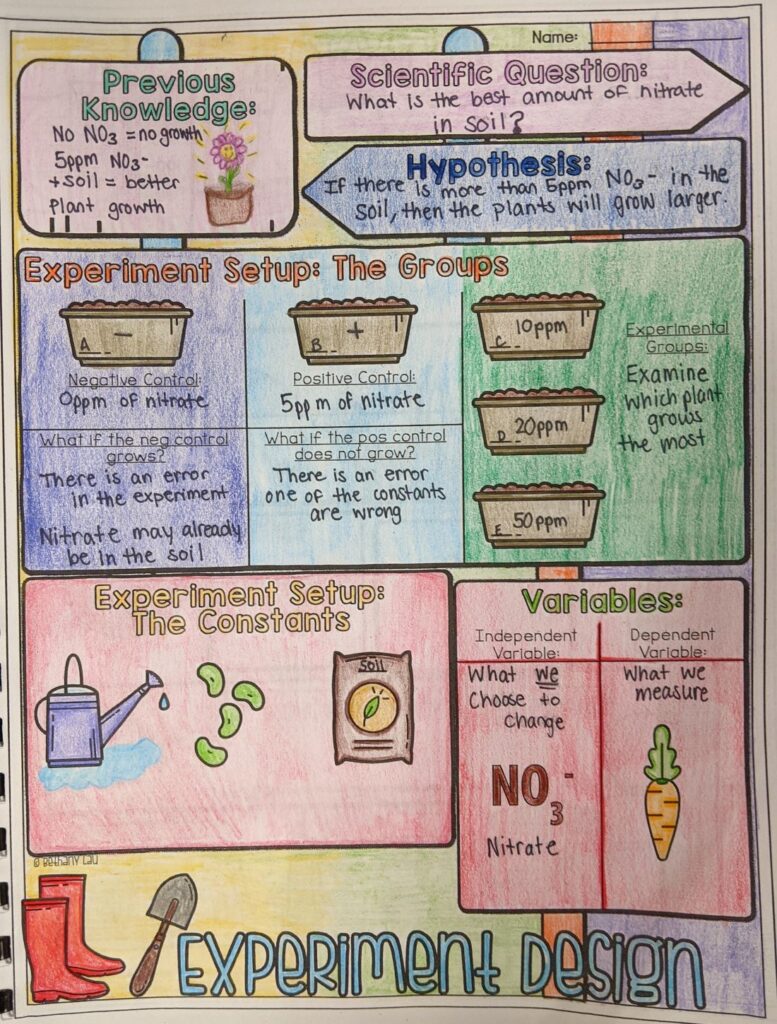 Name:
Previous
Knowledge:
No NO3 = no growth
5ppm NO3-
+soil = better
Plant growth
Scientific Question:
What is the best amount of nitrate
in soil?
Hypothesis:
If there is more than 5ppm NO3- in the
soil, then the plants will grow larger.
Experiment Setup: The Groups
A
−
Negative Control:
0ppm of nitrate
What if the neg control
grows?
There is an error
in the experiment
Nitrate may already
be in the soil
B
+
Positive Control:
5ppm of nitrate
What if the pos control
does not grow?
There is an error
one of the constants
are wrong
C 10ppm
D 20ppm
E 50ppm
Experimental
Groups:
Examine
which plant
grows
the most
Experiment Setup:
The Constants
Soil
Variables:
Independent
Variable:
What we
Choose to
change
NO3-
Nitrate
Dependent
Variable:
What we
measure
© Bethany Lau
Experiment Design